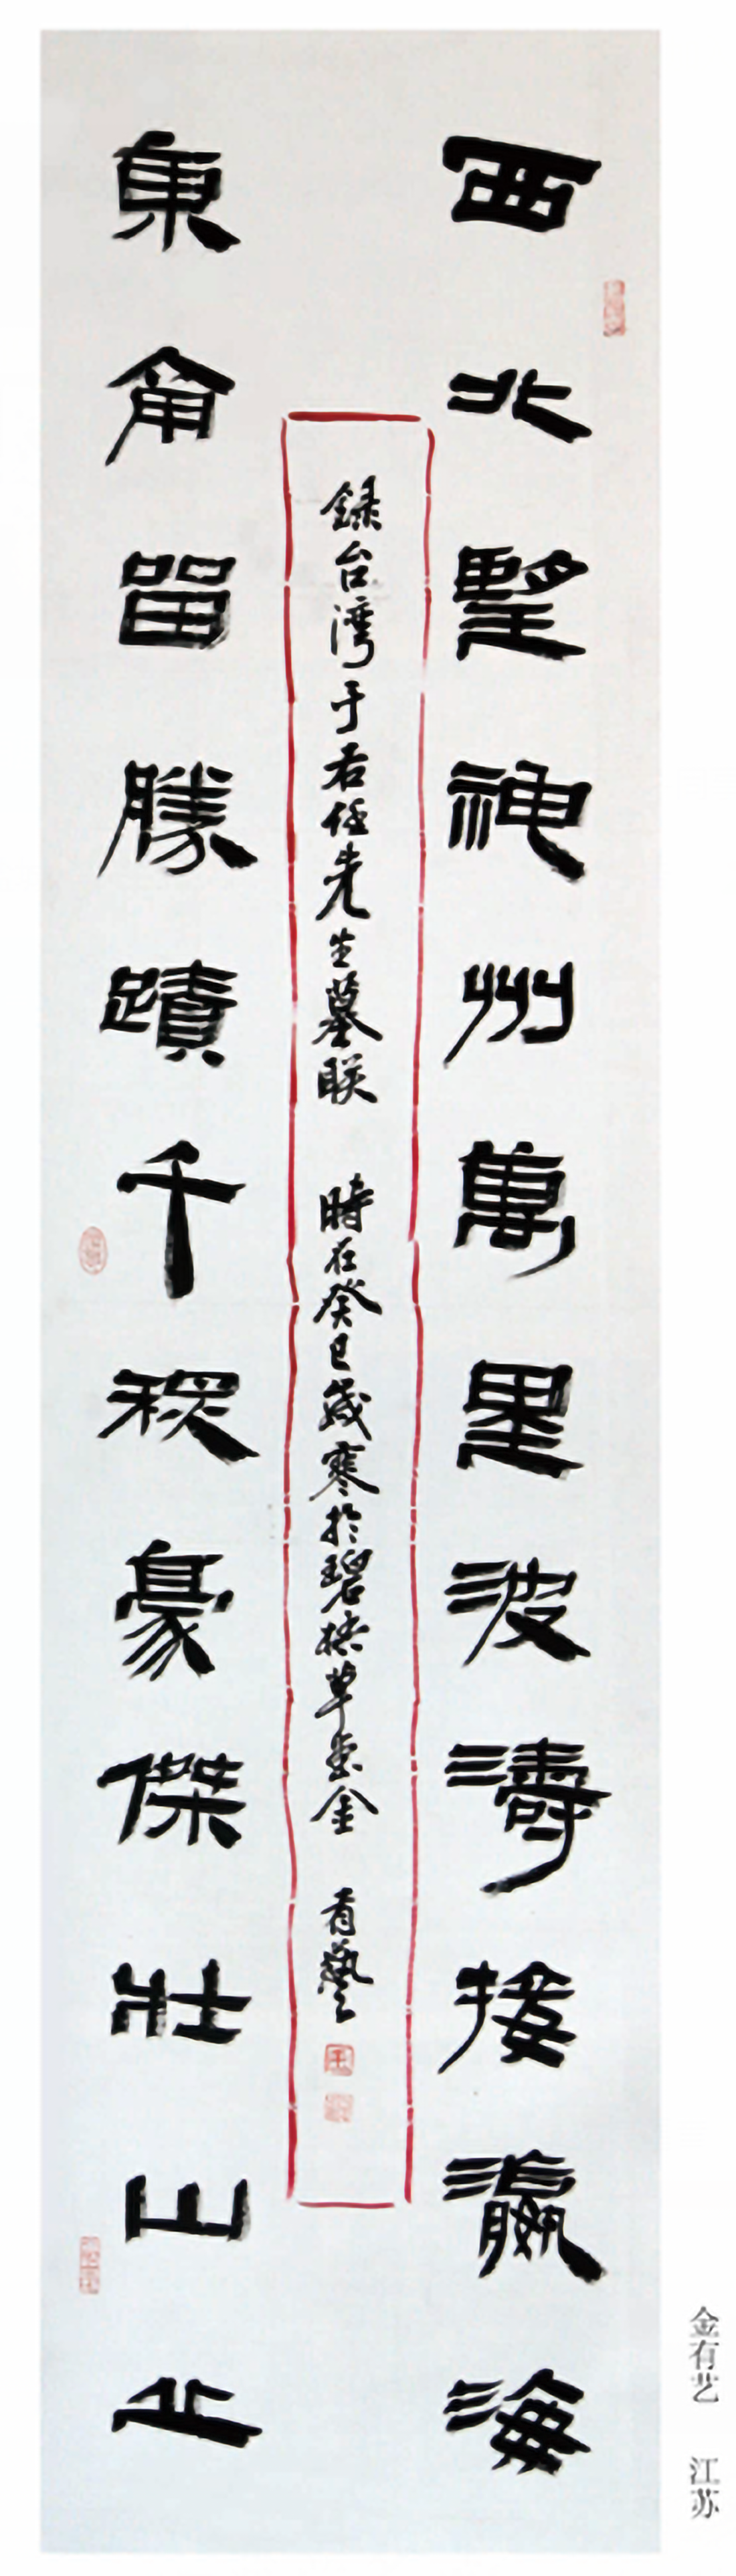 西北望神州萬里波濤接瀛海
東南留勝蹟千秋豪傑壯山丘
録台湾于右任先生墓联 時在癸巳歲寒於碧梧草堂金 有藝
金有艺 江苏